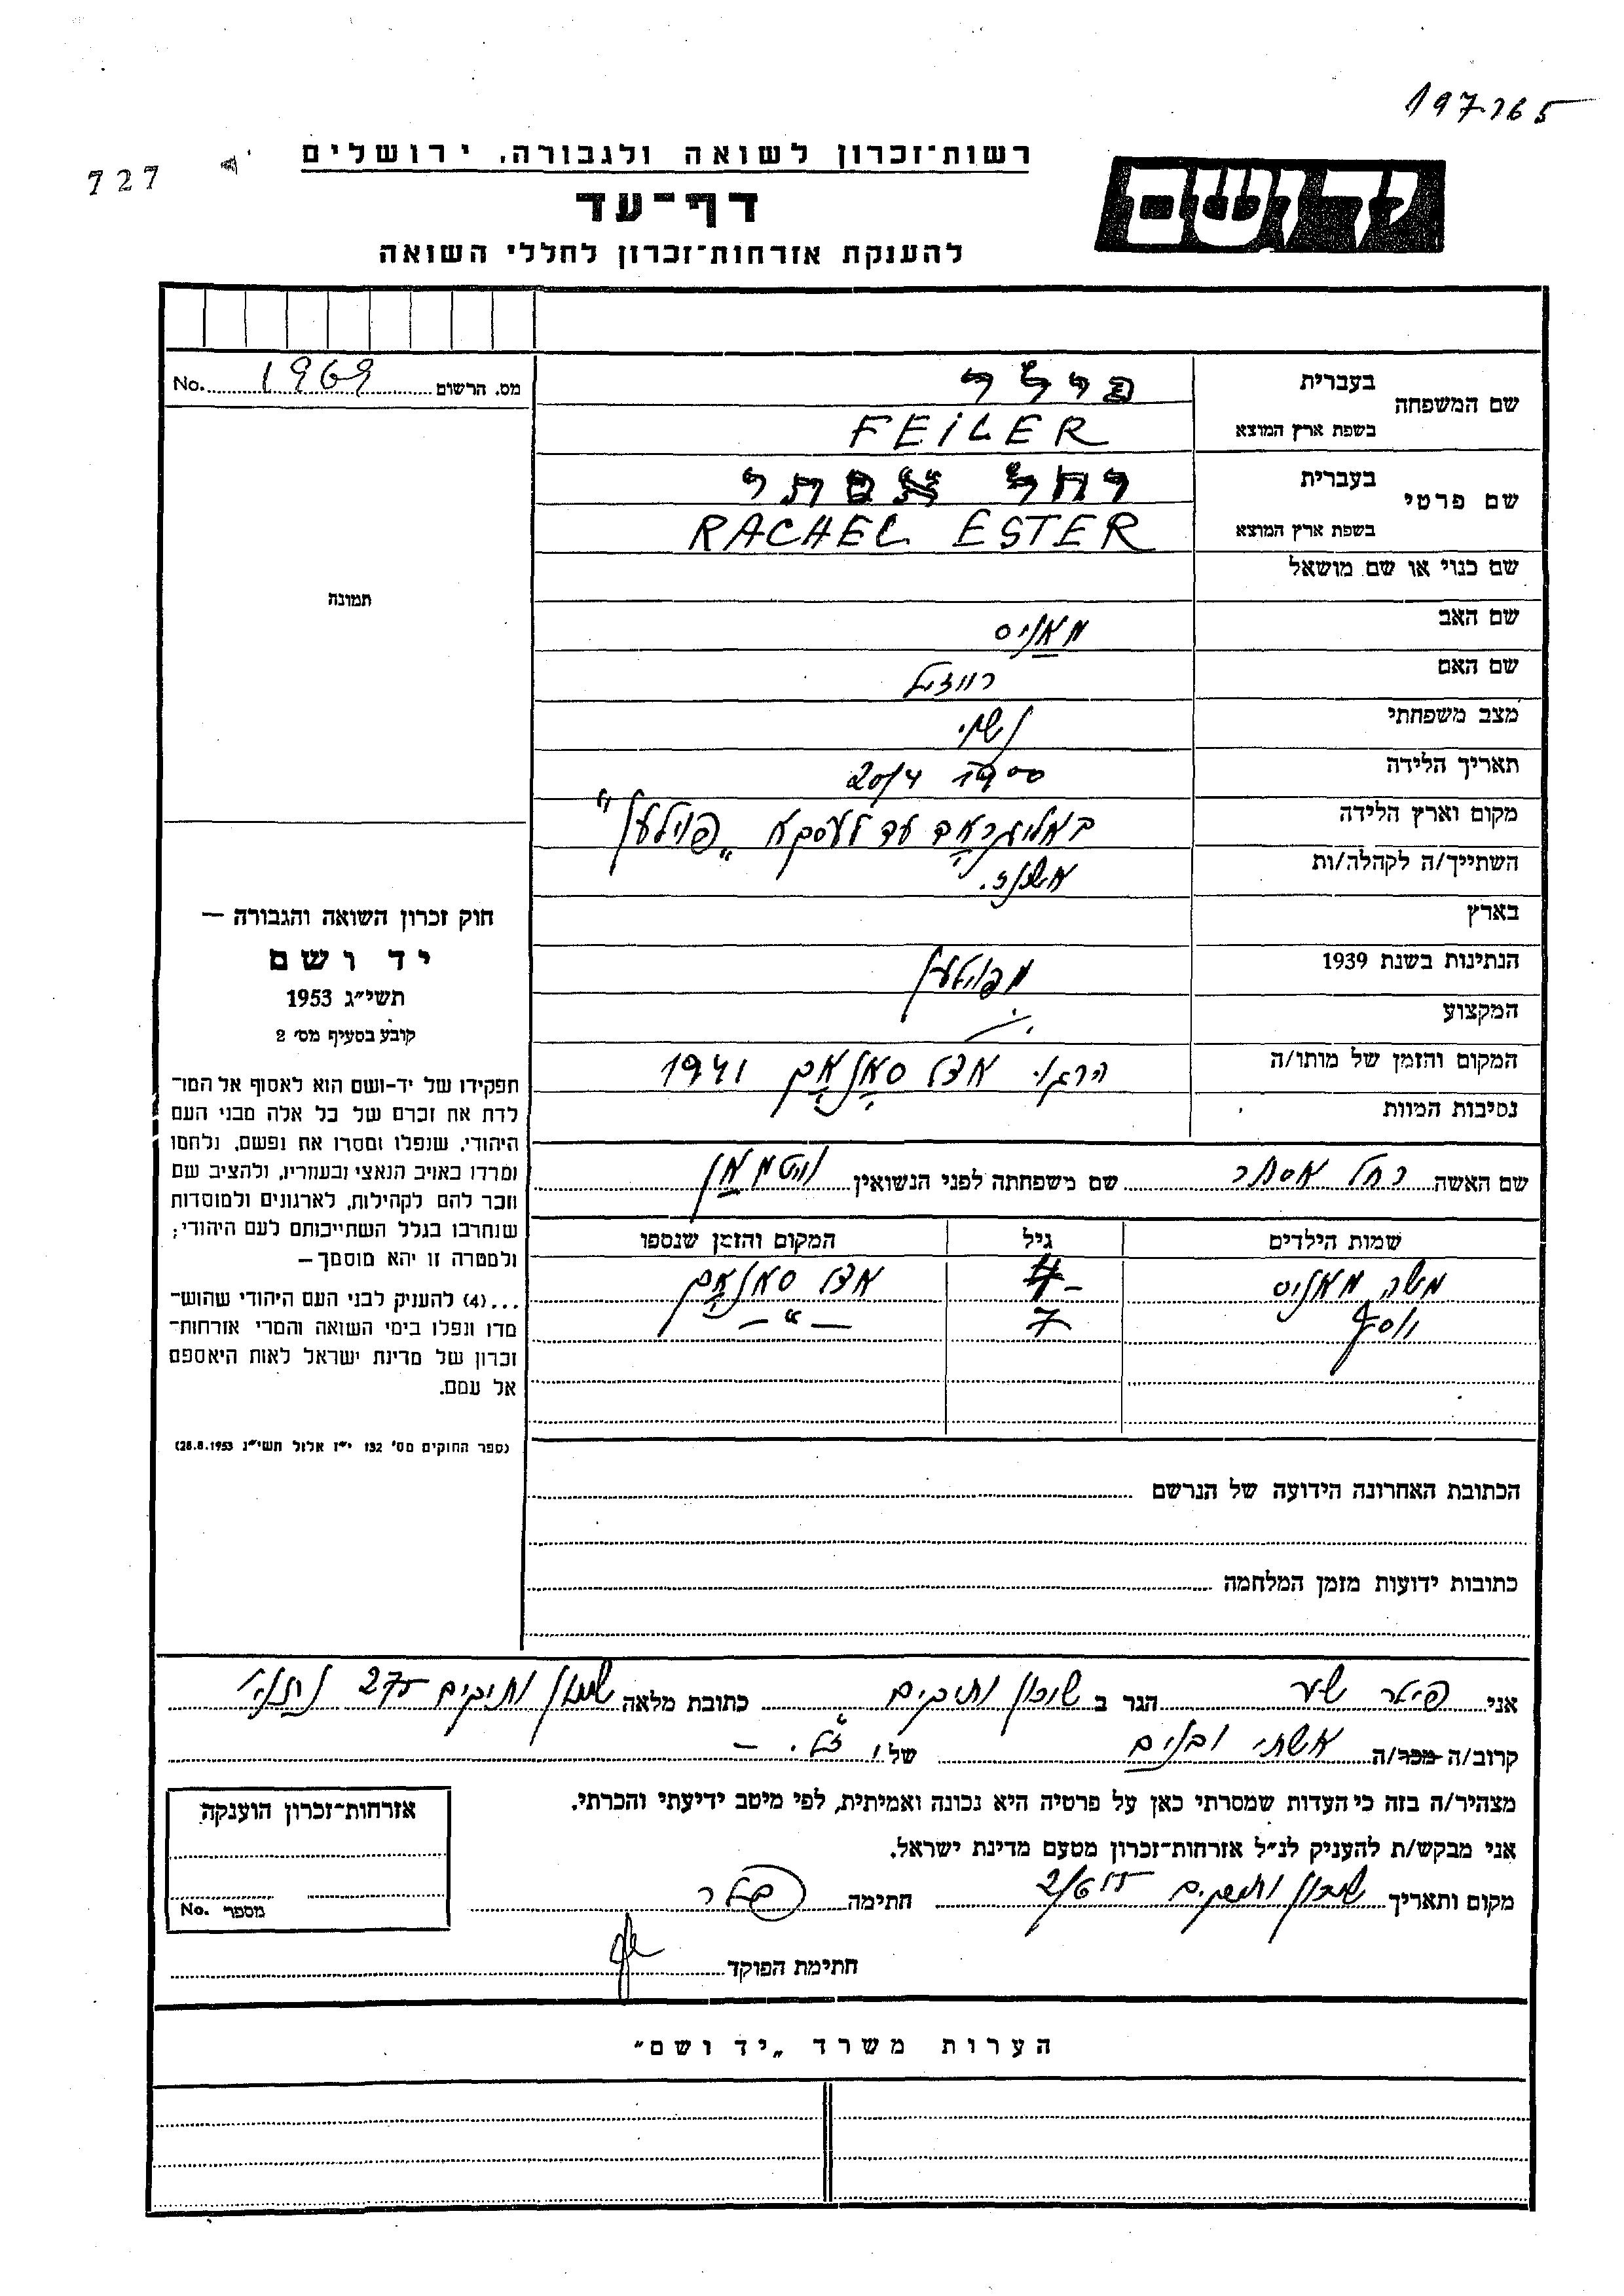 197265
727
רשות־זכרון לשואה ולגבורה, ירושלים
דף־עד
להענקת אזרחות־זכרון לחללי השואה
ידושם
מס. הרשום 1969 No.
תמונה
שם המשפחה
בעברית פילר
בשפת ארץ המוצא FEiLER
שם פרטי
בעברית רחל אסתר
בשפת ארץ המוצא RACHEL ESTER
שם כנוי או שם מושאל
שם האב מאניס
שם האם רוזיל
מצב משפחתי נשוי
תאריך הלידה 20/4 1900
מקום וארץ הלידה באליגראד עד לעסקא „פוילען"
השתייך/ה לקהלה/ות
בארץ
הנתינות בשנת 1939
המקצוע
המקום והזמן של מותו/ה הרגו אצל סאנאק 1941
נסיבות המוות
שם האשה רחל אסתר שם משפחתה לפני הנשואין
שמות הילדים גיל המקום והזמן שנספו
משה מאניס אצל סאנאק
יוסף 7 — " —
הכתובת האחרונה הידועה של הנרשם
כתובות ידועות מזמן המלחמה
חוק זכרון השואה והגבורה —
יד ושם
תשי״ג 1953
קובע בסעיף מס׳ 2
תפקידו של יד-ושם הוא לאסוף אל המו־
לדת את זכרם של כל אלה מבני העם
היהודי, שנפלו ומסרו את נפשם, נלחמו
ומרדו באויב הנאצי ובעוזריו, ולהציב שם
וזכר להם לקהילות, לארגונים ולמוסדות
שנחרבו בגלל השתייכותם לעם היהודי;
ולמטרה זו יהא מוסמך—
...(4) להענייק לבני העם היהודי שהוש־
מדו ונפלו בימי השואה והמרי אזרחות־
זכרון של מדינת ישראל לאות היאספם
אל עמם.
(ספר החוקים מס׳ 132 י״ז אלול תשי״ג 28.8.1953)
אני פילר הגר ב שיכון ותיקים כתובת מלאה שיכון ותיקים 275 נתניה
קרוב/ה מכר/ה אשתי ובנים של ז״ל. —
מצהיר/ה בזה כי העדות שמסרתי כאן על פרטיה היא נכונה ואמיתית, לפי מיטב ידיעתי והכרתי.
אני מבקש/ת להעניק לנ״ל אזרחות־זכרון מטעם מדינת ישראל.
מקום ותאריך שיכון ותיקים חתימה פילר
חתימת הפוקד
אזרחות־זכרון הוענקה
מספר No.
הערות משרד „יד ושם״